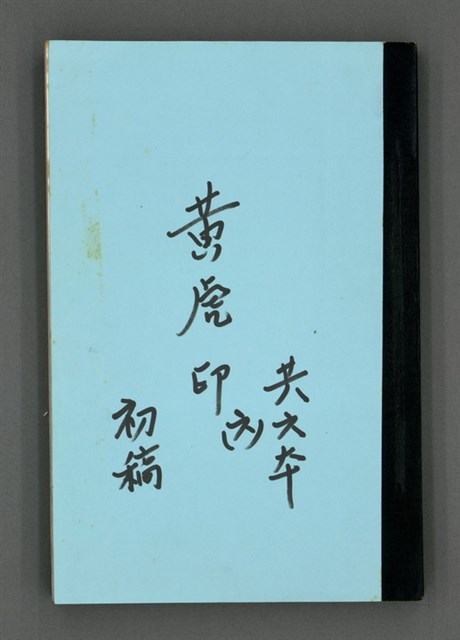 黃虎印
(六)
共六本
初稿